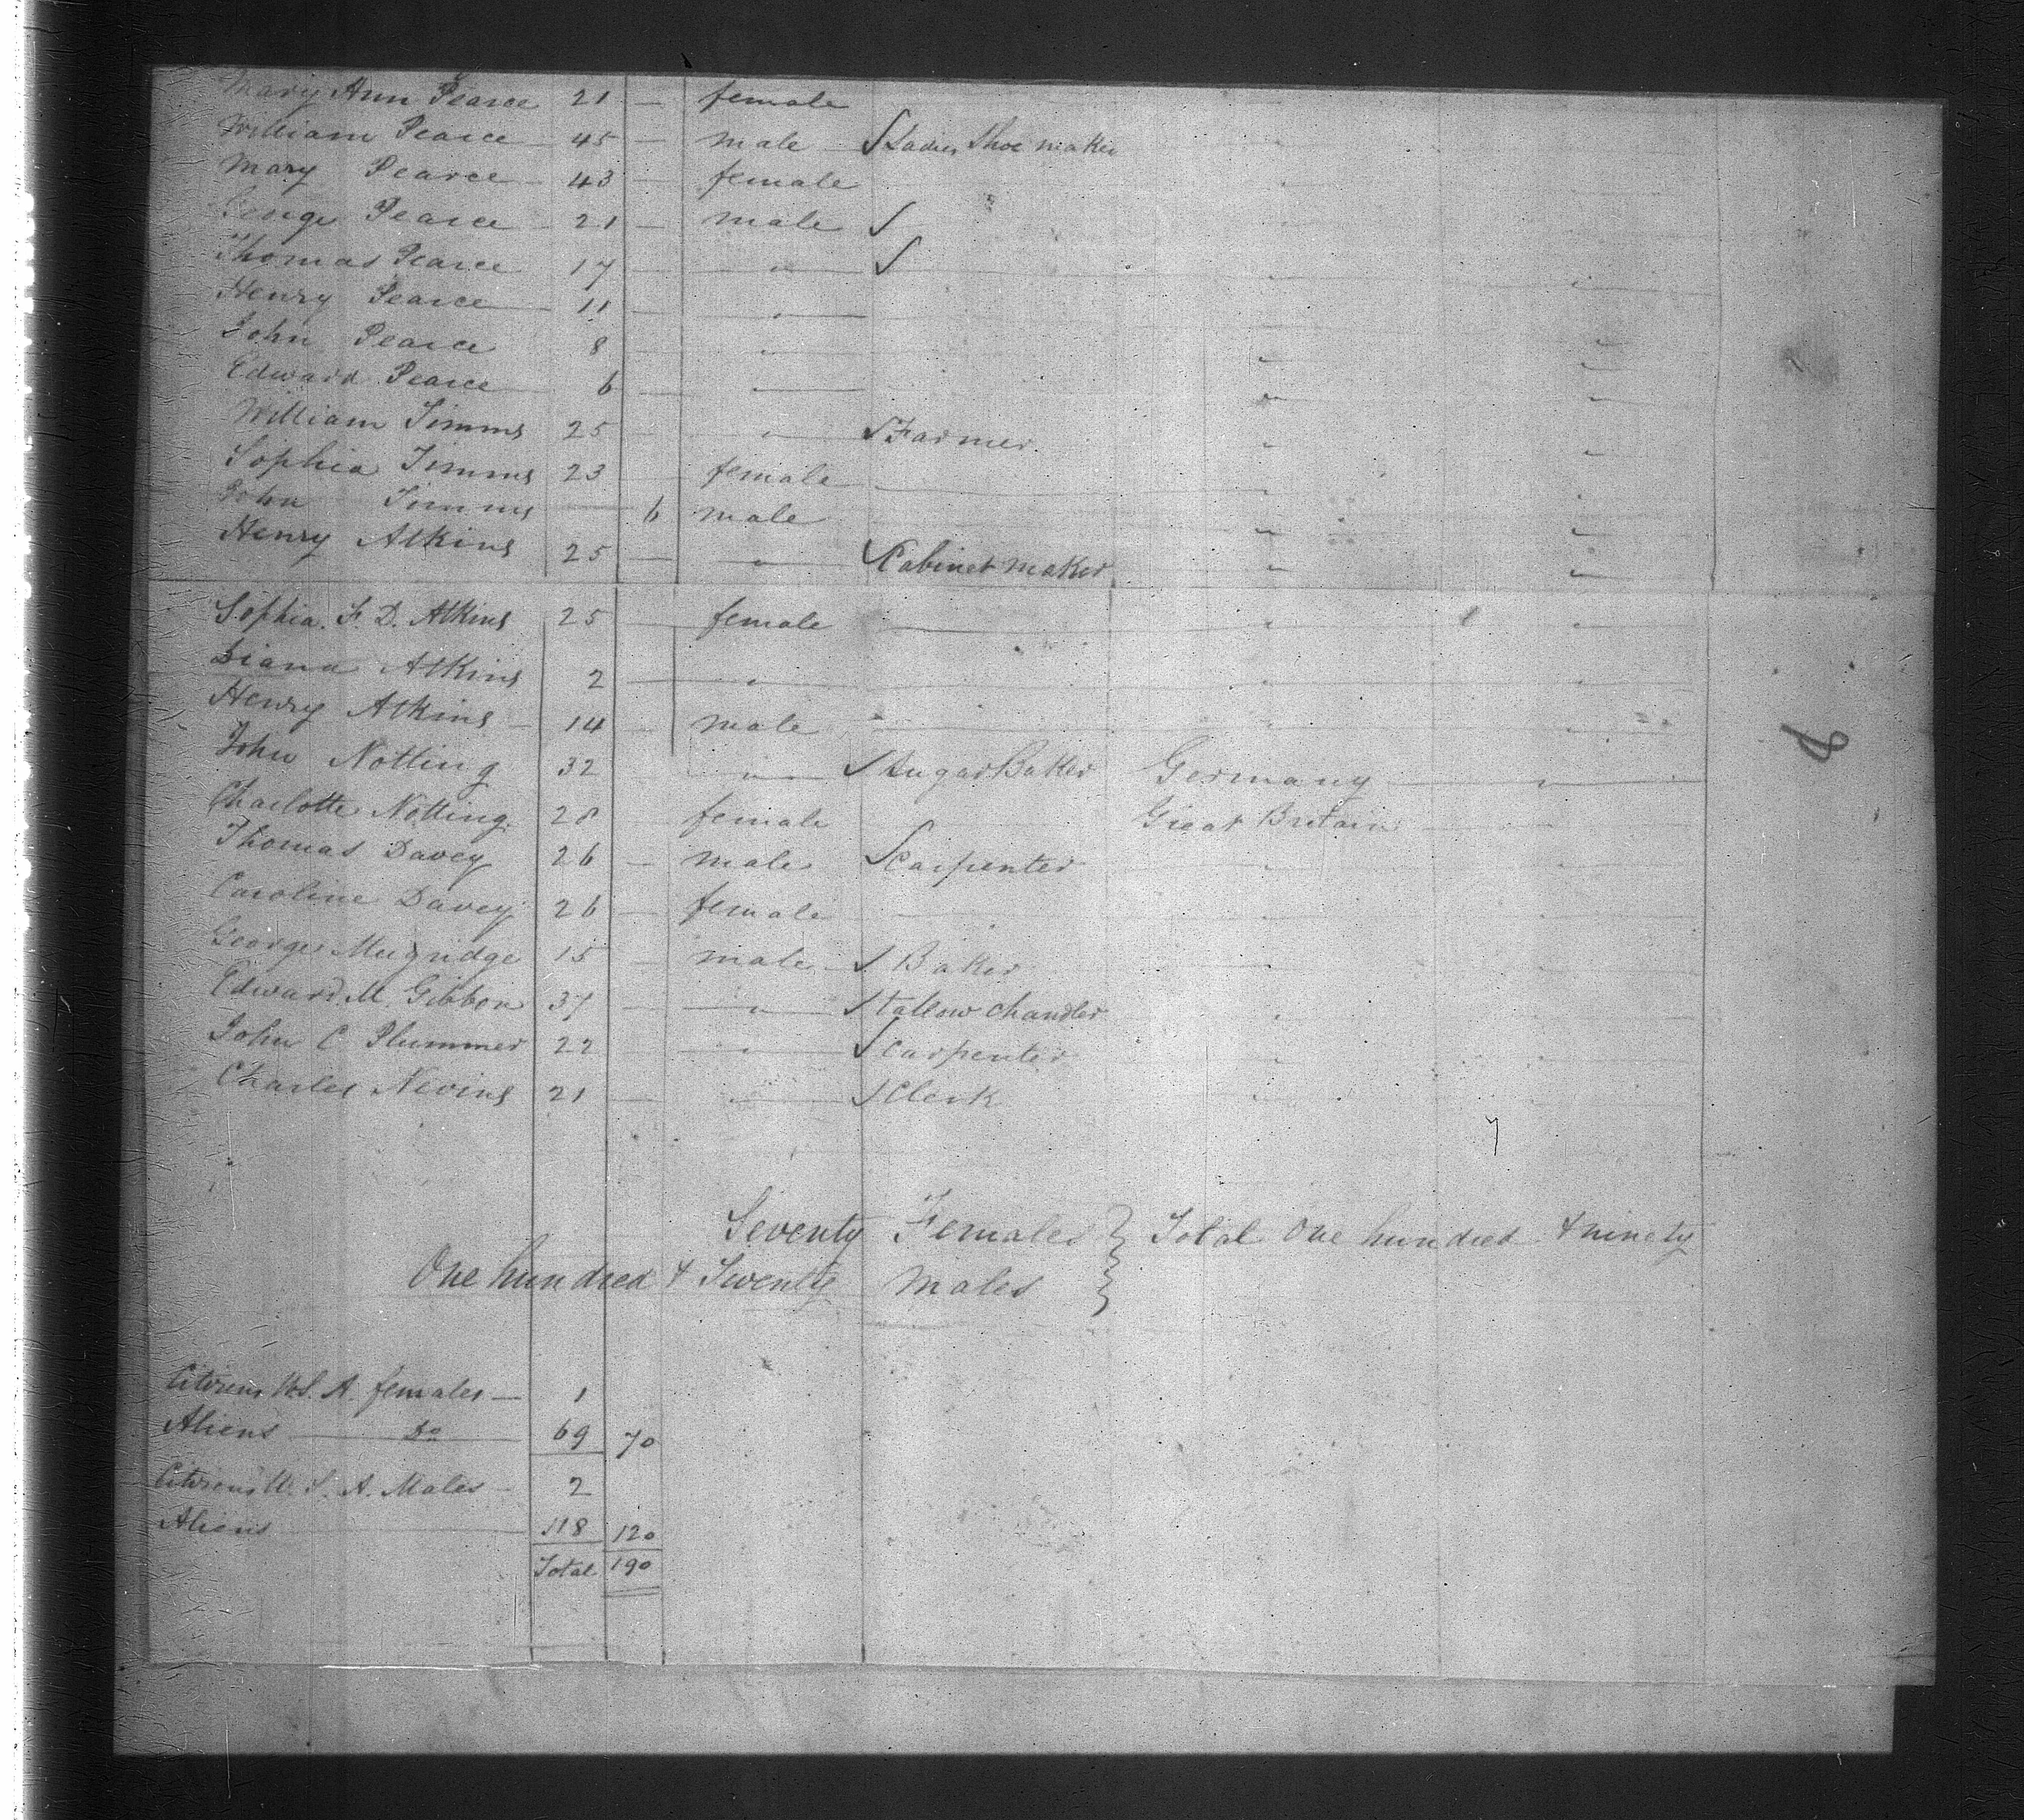 Mary Ann Pearce 21 — female
William Pearce 45 — male Ladies Shoe maker
Mary Pearce 43 — female
George Pearce 21 — male
Thomas Pearce 17 — "
Henry Pearce 11 — "
John Pearce 8 — " " "
Edward Pearce 6 — " " "
William Simms 25 — " Farmer " "
Sophia Simms 23 female " "
John Simms — 6 male " "
Henry Atkins 25 — " Cabinet maker " "
Sophia. F. D. Atkins 25 — female " "
Diana Atkins 2 — " " "
Henry Atkins 14 — male " "
John Notting 32 " Sugar Baker Germany "
Charlotte Notting 28 female Great Britain
Thomas Davey 26 — male Carpenter " "
Caroline Davey 26 — female " "
George Mugridge 15 — male Baker " "
Edward. M. Gibbon 37 — " tallow chandler " "
John C Plummer 22 " Carpenter " "
Charles Nevins 21 — " Clerk " "
Seventy Females } Total One hundred & ninety
One hundred & Twenty Males
Citizens U.S. A. females — 1
Aliens — Do — 69 70
Citizens U. S. A. Males — 2
Aliens 118 120
Total 190